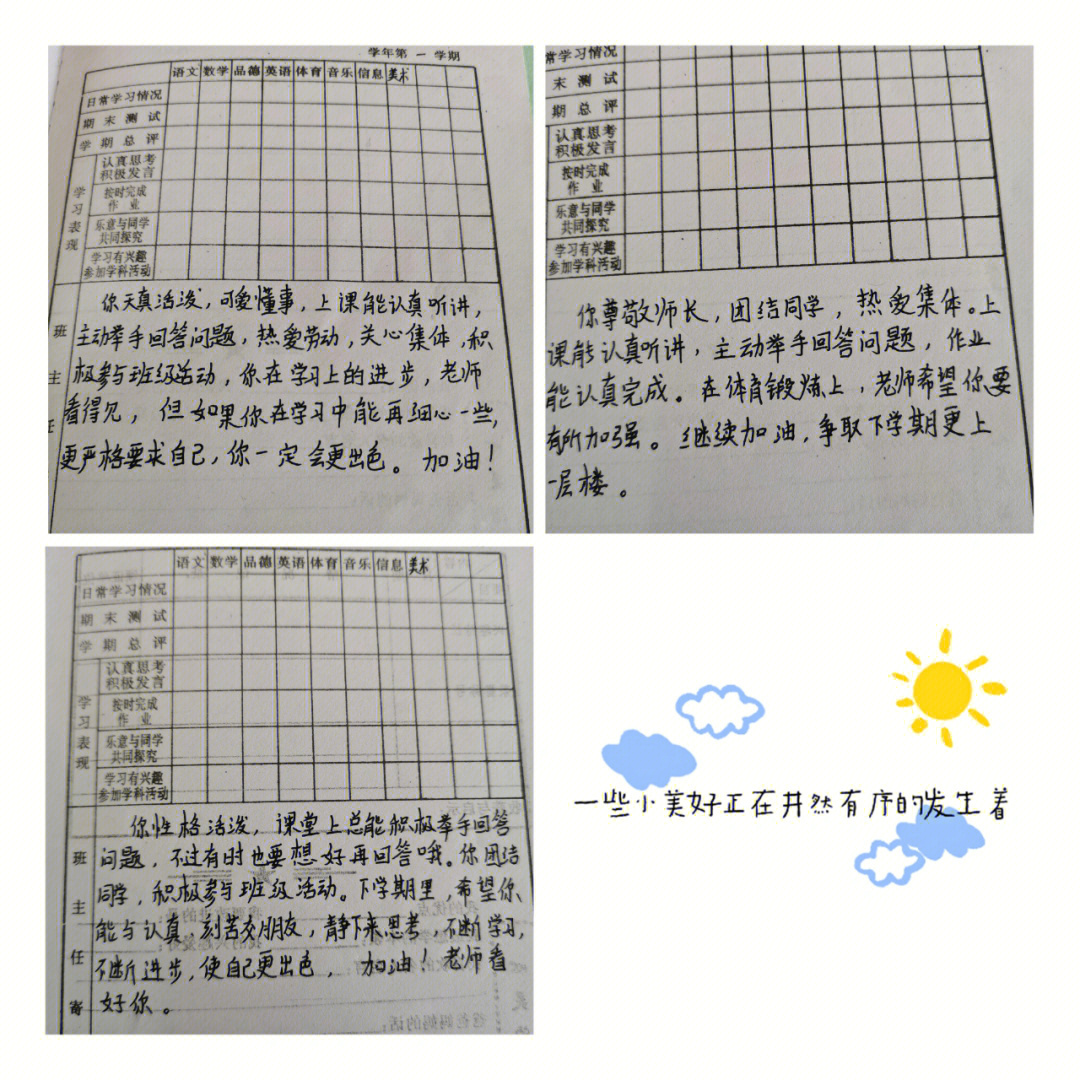 学年第 一 学期
语文 数学 品德 英语 体育 音乐 信息 美术
日常学习情况
期末测试
学期总评
学习表现
认真思考
积极发言
按时完成
作业
乐意与同学
共同探究
学习有兴趣
参加学科活动
班主任
你天真活泼，可爱懂事，上课能认真听讲，
主动举手回答问题，热爱劳动，关心集体，积
极参与班级活动，你在学习上的进步，老师
看得见，但如果你在学习中能再细心一些，
更严格要求自己，你一定会更出色。加油！
常学习情况
末测试
期总评
认真思考
积极发言
按时完成
作业
乐意与同学
共同探究
学习有兴趣
参加学科活动
你尊敬师长，团结同学，热爱集体。上
课能认真听讲，主动举手回答问题，作业
能认真完成。在体育锻炼上，老师希望你要
有所加强。继续加油，争取下学期更上
一层楼。
语文 数学 品德 英语 体育 音乐 信息 美术
日常学习情况
期末测试
学期总评
学习表现
认真思考
积极发言
按时完成
作业
乐意与同学
共同探究
学习有兴趣
参加学科活动
班主任寄
你性格活泼，课堂上总能积极举手回答
问题，不过有时也要想好再回答哦。你团结
同学，积极参与班级活动。下学期里，希望你
能与认真、刻苦交朋友，静下来思考，不断学习，
不断进步，使自己更出色，加油！老师看
好你。
一些小美好正在井然有序的发生着